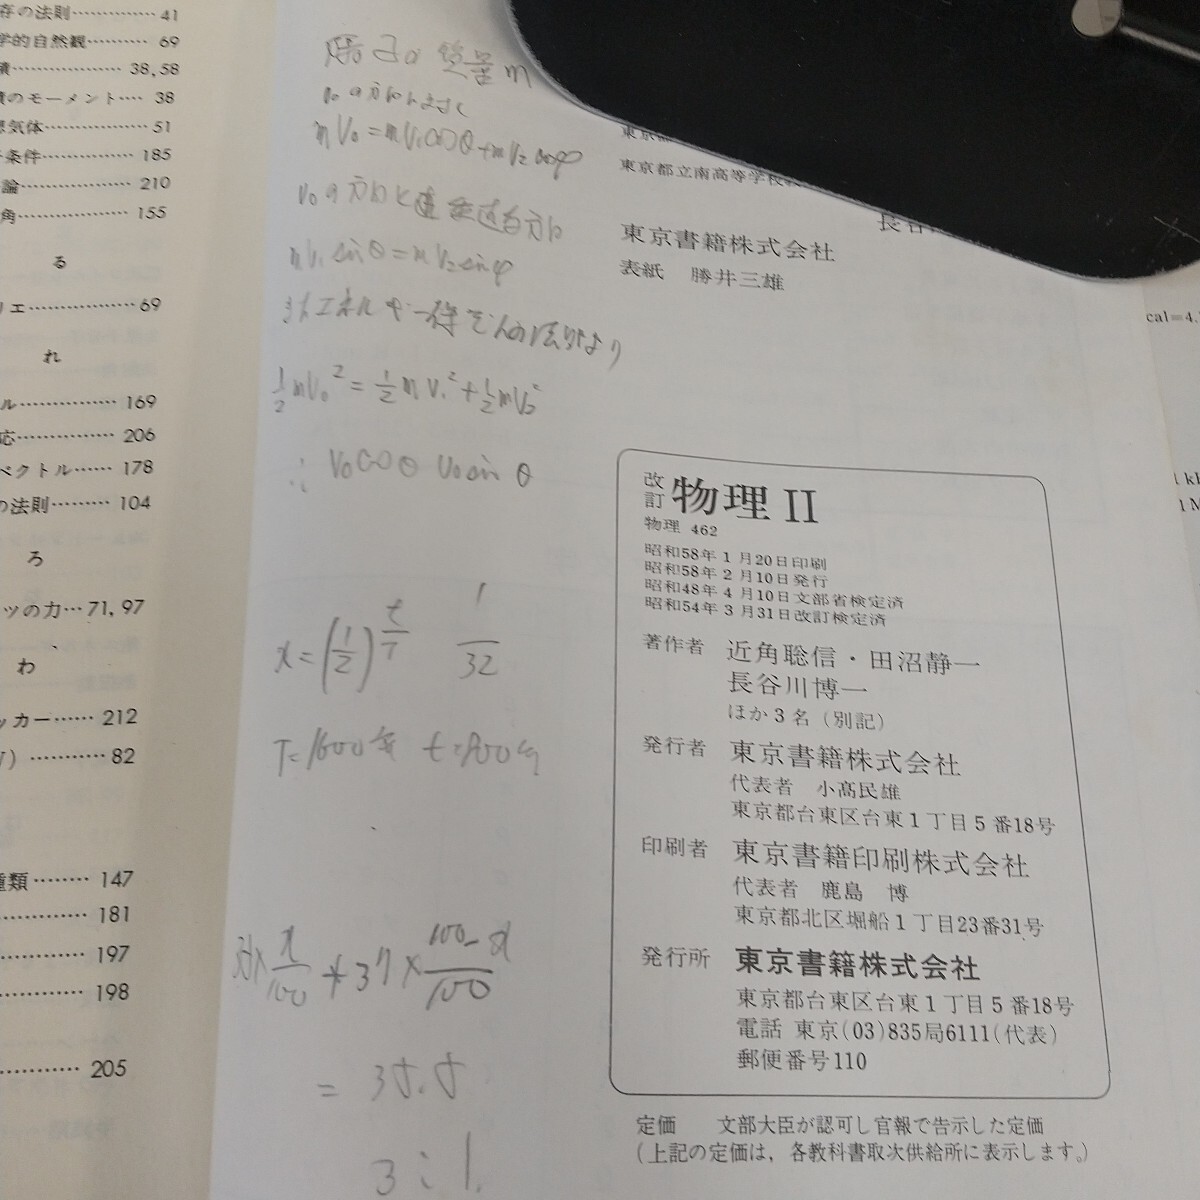 存の法則………… 41
学的自然観……… 69
積……………… 38, 58
のモーメント…… 38
気体……………… 51
条件…………… 185
論……………… 210
角……………… 155
る
リエ……………… 69
れ
ル……………… 169
応…………… 206
ペクトル…… 178
の法則……… 104
ろ
ッツの力… 71, 97
わ
ッカー…… 212
) ………… 82
種類……… 147
………… 181
………… 197
………… 198
………… 205
質量m
mV₀=mV₁cosθ+mV₂cosφ
V₀の方向と垂直な方向
mV₁sinθ=mV₂sinφ
½mV₀²=½mV₁²+½mV₂²
∴ V₀cosθ V₀sinθ
x=(1/2)^(t/T) 1/32
T=1600年
x/100+37×(100-x)/100
=35.5
3:1.
東京都立南高等学校
東京書籍株式会社
表紙 勝井三雄
cal=4.
改訂 物理II
物理 462
昭和58年1月20日印刷
昭和58年2月10日発行
昭和48年4月10日文部省検定済
昭和54年3月31日改訂検定済
著作者 近角聡信・田沼静一
長谷川博一
ほか3名(別記)
発行者 東京書籍株式会社
代表者 小髙民雄
東京都台東区台東1丁目5番18号
印刷者 東京書籍印刷株式会社
代表者 鹿島 博
東京都北区堀船1丁目23番31号
発行所 東京書籍株式会社
東京都台東区台東1丁目5番18号
電話 東京(03)835局6111(代表)
郵便番号110
定価 文部大臣が認可し官報で告示した定価
(上記の定価は、各教科書取次供給所に表示します。)